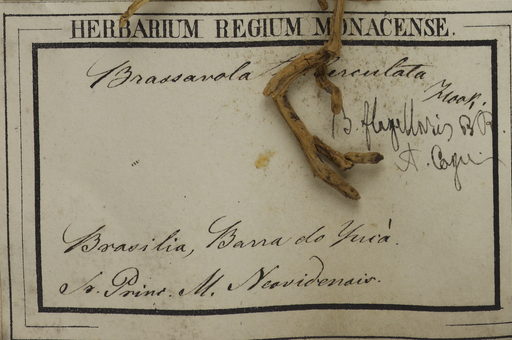 HERBARIUM REGIUM MONACENSE.
Brassavola tuberculata
Hook.
B. flagellaris B R.
A. Cogn
Brasilia, Barra do Jucà.
Sr. Princ. M. Neovidensis.